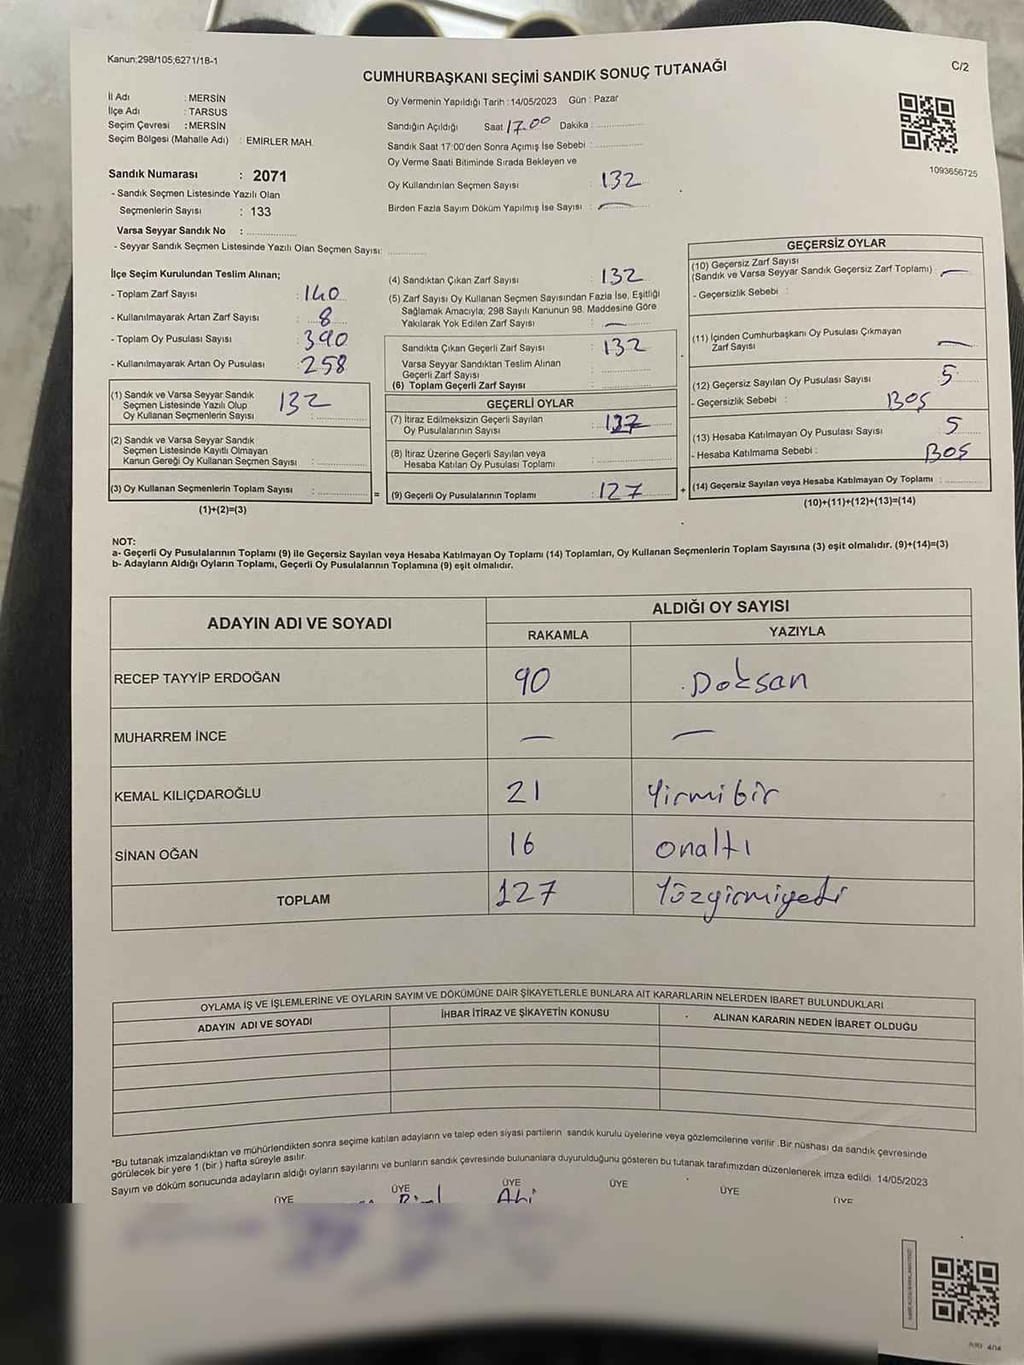 Kanun:298/105;6271/18-1
CUMHURBAŞKANI SEÇİMİ SANDIK SONUÇ TUTANAĞI
C/2
İl Adı : MERSİN
İlçe Adı : TARSUS
Seçim Çevresi : MERSİN
Seçim Bölgesi (Mahalle Adı) : EMIRLER MAH.
Sandık Numarası : 2071
- Sandık Seçmen Listesinde Yazılı Olan
Seçmenlerin Sayısı : 133
Varsa Seyyar Sandık No : ..............
- Seyyar Sandık Seçmen Listesinde Yazılı Olan Seçmen Sayısı: ..............
Oy Vermenin Yapıldığı Tarih : 14/05/2023 Gün : Pazar
Sandığın Açıldığı Saat 17.00 Dakika : ..............
Sandık Saat 17:00'den Sonra Açımış İse Sebebi : ..............
Oy Verme Saati Bitiminde Sırada Bekleyen ve
Oy Kullandırılan Seçmen Sayısı : 132
Birden Fazla Sayım Döküm Yapılmış İse Sayısı : —
1093656725
İlçe Seçim Kurulundan Teslim Alınan;
- Toplam Zarf Sayısı : 140
- Kullanılmayarak Artan Zarf Sayısı : 8
- Toplam Oy Pusulası Sayısı : 390
- Kullanılmayarak Artan Oy Pusulası : 258
(1) Sandık ve Varsa Seyyar Sandık
Seçmen Listesinde Yazılı Olup
Oy Kullanan Seçmenlerin Sayısı : 132
(2) Sandık ve Varsa Seyyar Sandık
Seçmen Listesinde Kayıtlı Olmayan
Kanun Gereği Oy Kullanan Seçmen Sayısı : ..............
(3) Oy Kullanan Seçmenlerin Toplam Sayısı : ..............
(1)+(2)=(3)
(4) Sandıktan Çıkan Zarf Sayısı : 132
(5) Zarf Sayısı Oy Kullanan Seçmen Sayısından Fazla İse, Eşitliği
Sağlamak Amacıyla, 298 Sayılı Kanunun 98. Maddesine Göre
Yakılarak Yok Edilen Zarf Sayısı : —
Sandıkta Çıkan Geçerli Zarf Sayısı : 132
Varsa Seyyar Sandıktan Teslim Alınan
Geçerli Zarf Sayısı : ..............
(6) Toplam Geçerli Zarf Sayısı : ..............
GEÇERLİ OYLAR
(7) İtiraz Edilmeksizin Geçerli Sayılan
Oy Pusulalarının Sayısı : 127
(8) İtiraz Üzerine Geçerli Sayılan veya
Hesaba Katılan Oy Pusulası Toplamı : ..............
= (9) Geçerli Oy Pusulalarının Toplamı : 127 +
GEÇERSİZ OYLAR
(10) Geçersiz Zarf Sayısı
(Sandık ve Varsa Seyyar Sandık Geçersiz Zarf Toplamı) : —
- Geçersizlik Sebebi :
(11) İçinden Cumhurbaşkanı Oy Pusulası Çıkmayan
Zarf Sayısı : —
(12) Geçersiz Sayılan Oy Pusulası Sayısı : 5
- Geçersizlik Sebebi : BOŞ
(13) Hesaba Katılmayan Oy Pusulası Sayısı : 5
- Hesaba Katılmama Sebebi : BOŞ
(14) Geçersiz Sayılan veya Hesaba Katılmayan Oy Toplamı : ..............
(10)+(11)+(12)+(13)=(14)
NOT:
a- Geçerli Oy Pusulalarının Toplamı (9) ile Geçersiz Sayılan veya Hesaba Katılmayan Oy Toplamı (14) Toplamları, Oy Kullanan Seçmenlerin Toplam Sayısına (3) eşit olmalıdır. (9)+(14)=(3)
b- Adayların Aldığı Oyların Toplamı, Geçerli Oy Pusulalarının Toplamına (9) eşit olmalıdır.
ADAYIN ADI VE SOYADI
ALDIĞI OY SAYISI
RAKAMLA YAZIYLA
RECEP TAYYİP ERDOĞAN 90 Doksan
MUHARREM İNCE — —
KEMAL KILIÇDAROĞLU 21 Yirmibir
SİNAN OĞAN 16 onaltı
TOPLAM 127 Yözyirmiyedi
OYLAMA İŞ VE İŞLEMLERİNE VE OYLARIN SAYIM VE DÖKÜMÜNE DAİR ŞİKAYETLERLE BUNLARA AİT KARARLARIN NELERDEN İBARET BULUNDUKLARI
ADAYIN ADI VE SOYADI İHBAR İTİRAZ VE ŞİKAYETİN KONUSU ALINAN KARARIN NEDEN İBARET OLDUĞU
*Bu tutanak imzalandıktan ve mühürlendikten sonra seçime katılan adayların ve talep eden siyasi partilerin sandık kurulu üyelerine veya gözlemcilerine verilir. Bir nüshası da sandık çevresinde
görülecek bir yere 1 (bir) hafta süreyle asılır.
Sayım ve döküm sonucunda adayların aldığı oyların sayılarını ve bunların sandık çevresinde bulunanlara duyurulduğunu gösteren bu tutanak tarafımızdan düzenlenerek imza edildi. 14/05/2023
ÜYE ÜYE ÜYE ÜYE ÜYE ÜYE